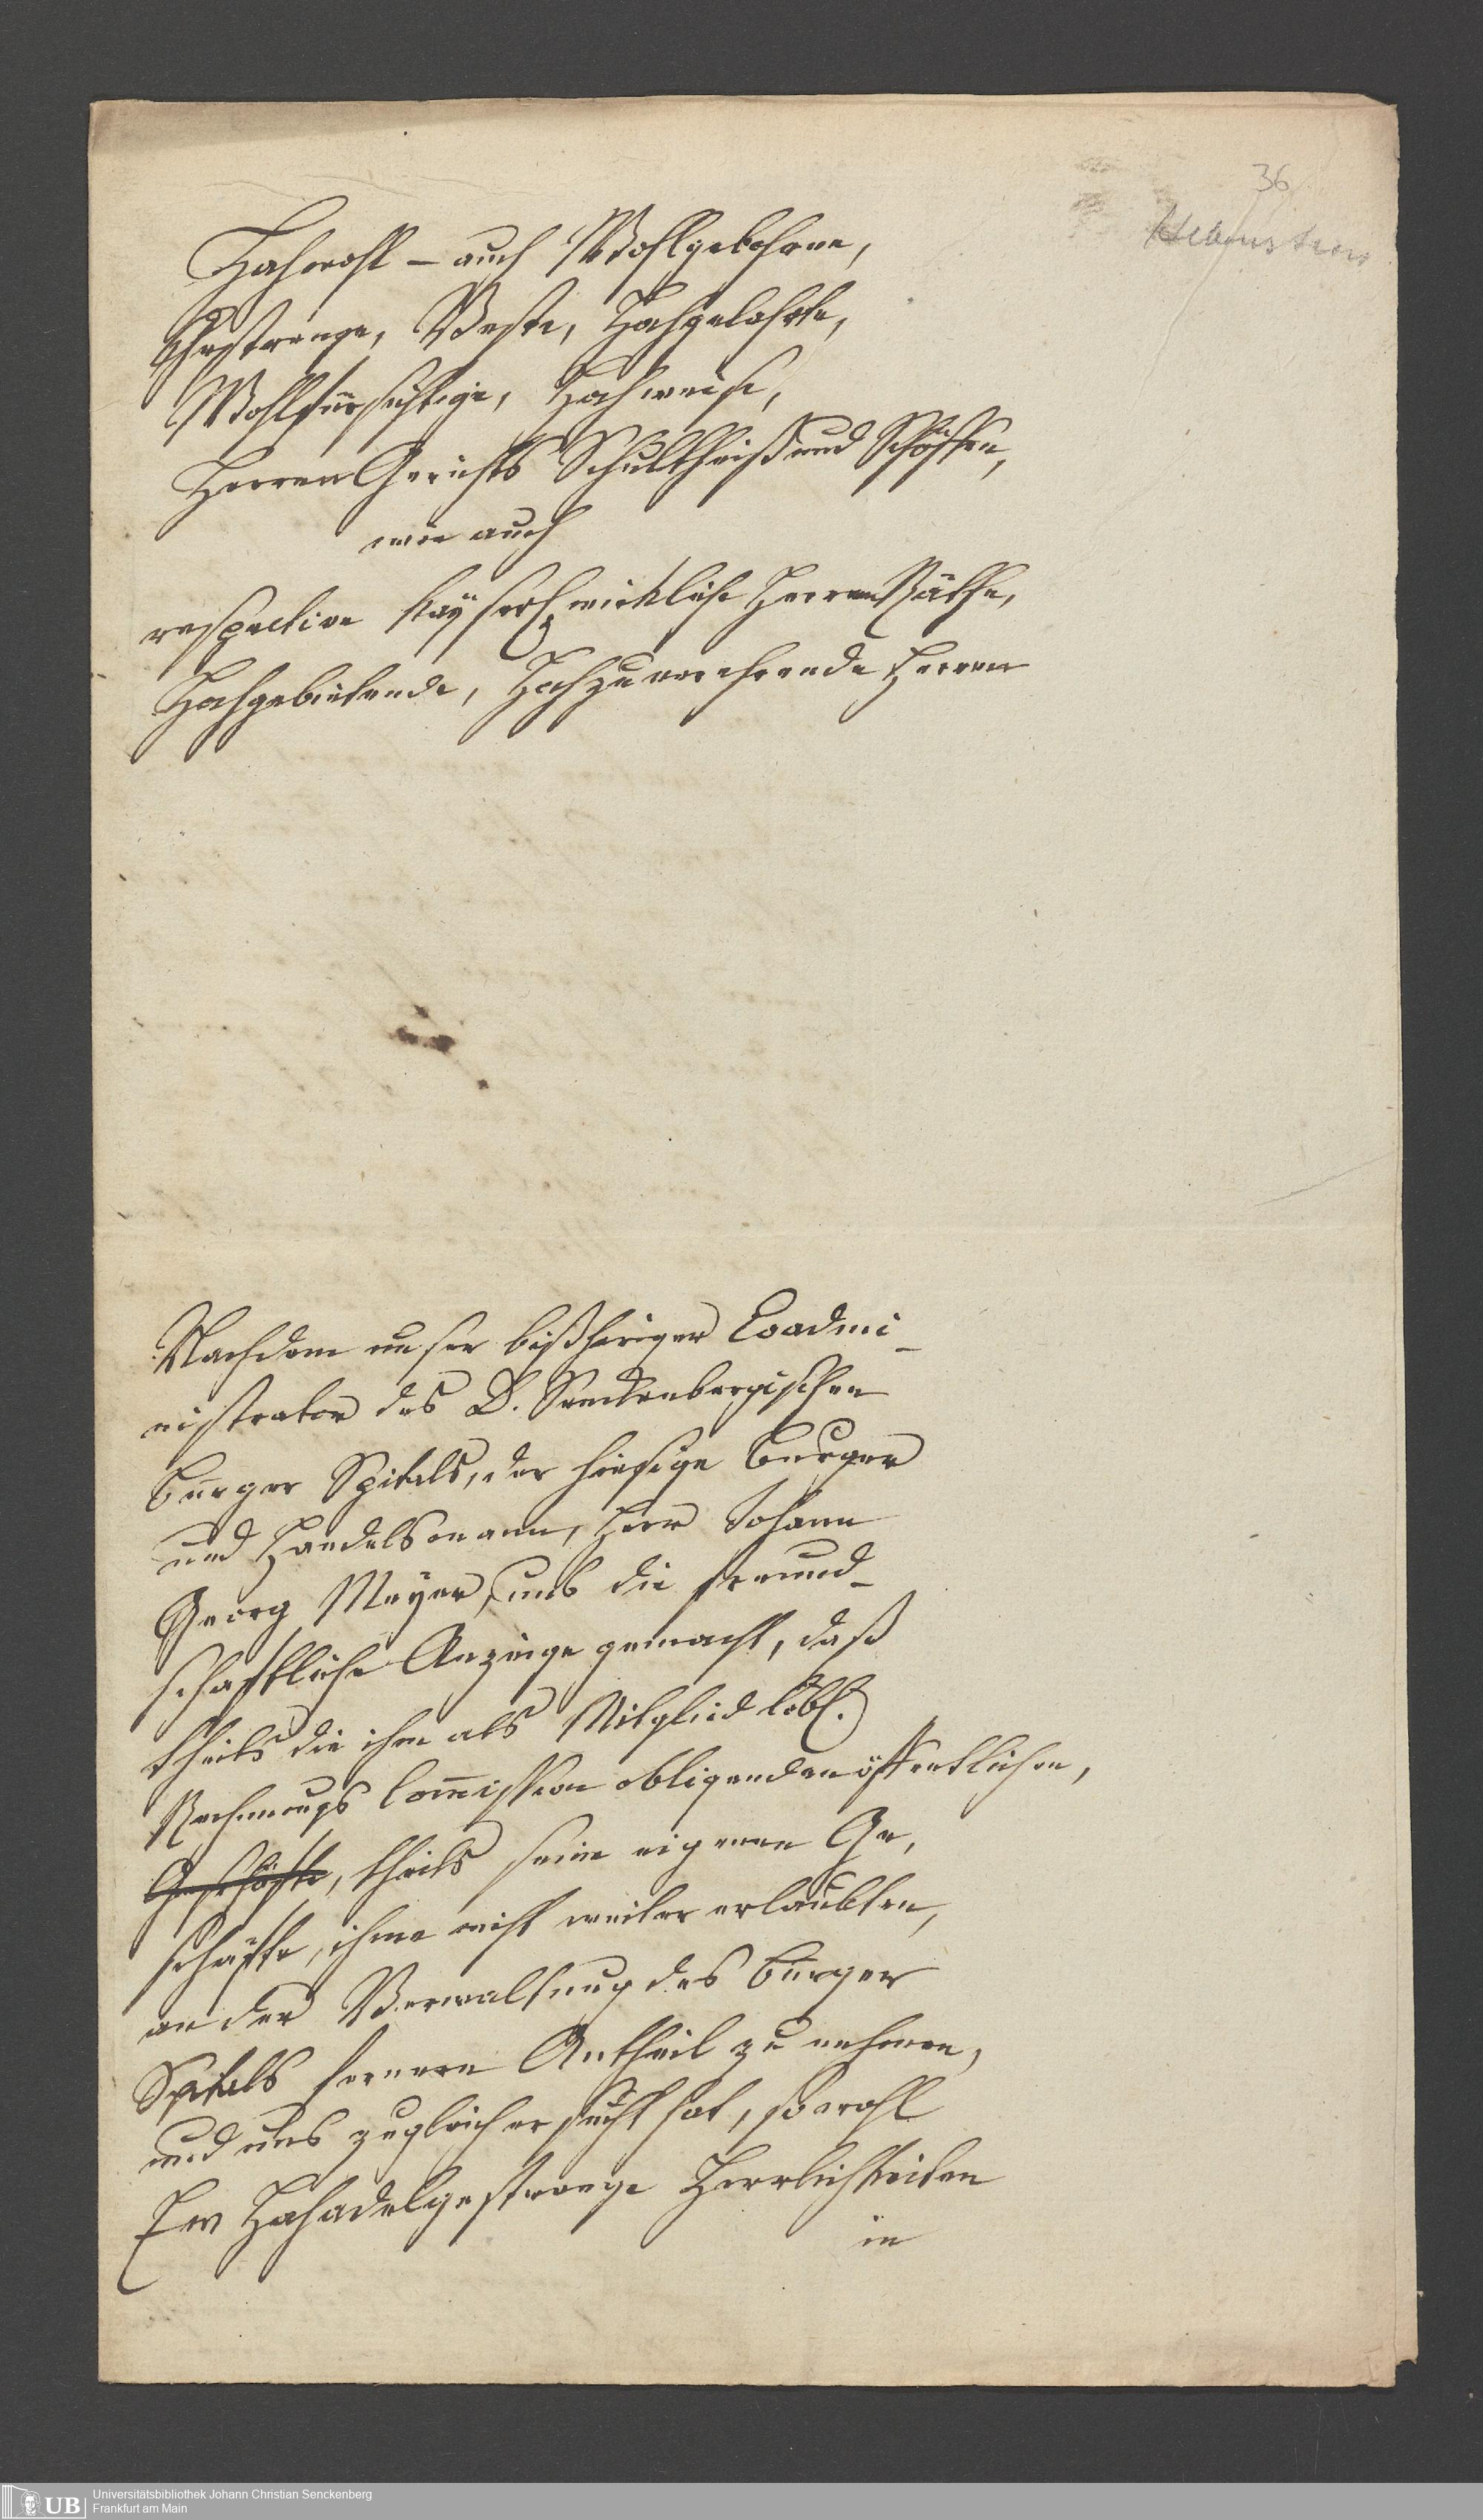 36
Hochwohl- auch Wohlgebohrne,
Gestrenge, Veste, Hochgelahrte,
Wohlfürsichtige, Hochweise,
Herren Gerichts Schultheiß und Schöffen,
wie auch
respective Kayserl. wirkliche Herren Räthe,
Hochgebietende, Hochzuverehrende Herren
Nachdem unser bißheriger Coadmi-
nistrator des D. Senckenbergischen
Burger Spitals, der hiesige Burger
und Handelsmann, Herr Johann
Georg Meyer, uns die freund-
schaftliche Anzeige gemacht, daß
theils die ihm als Mitglied löbl.
Rechnungs Com̅ission obligenden öffentlichen,
Geschäfte, theils seine eigenen Ge,
schäfte, ihme nicht weiter erlaubten,
an der Verwaltung des Burger
Spitals fernern Antheil zu nehmen,
und uns zugleich ersucht hat, sowohl
Ew Hochadelgestrenge Herrlichkeiten
in
UB
Universitätsbibliothek Johann Christian Senckenberg
Frankfurt am Main